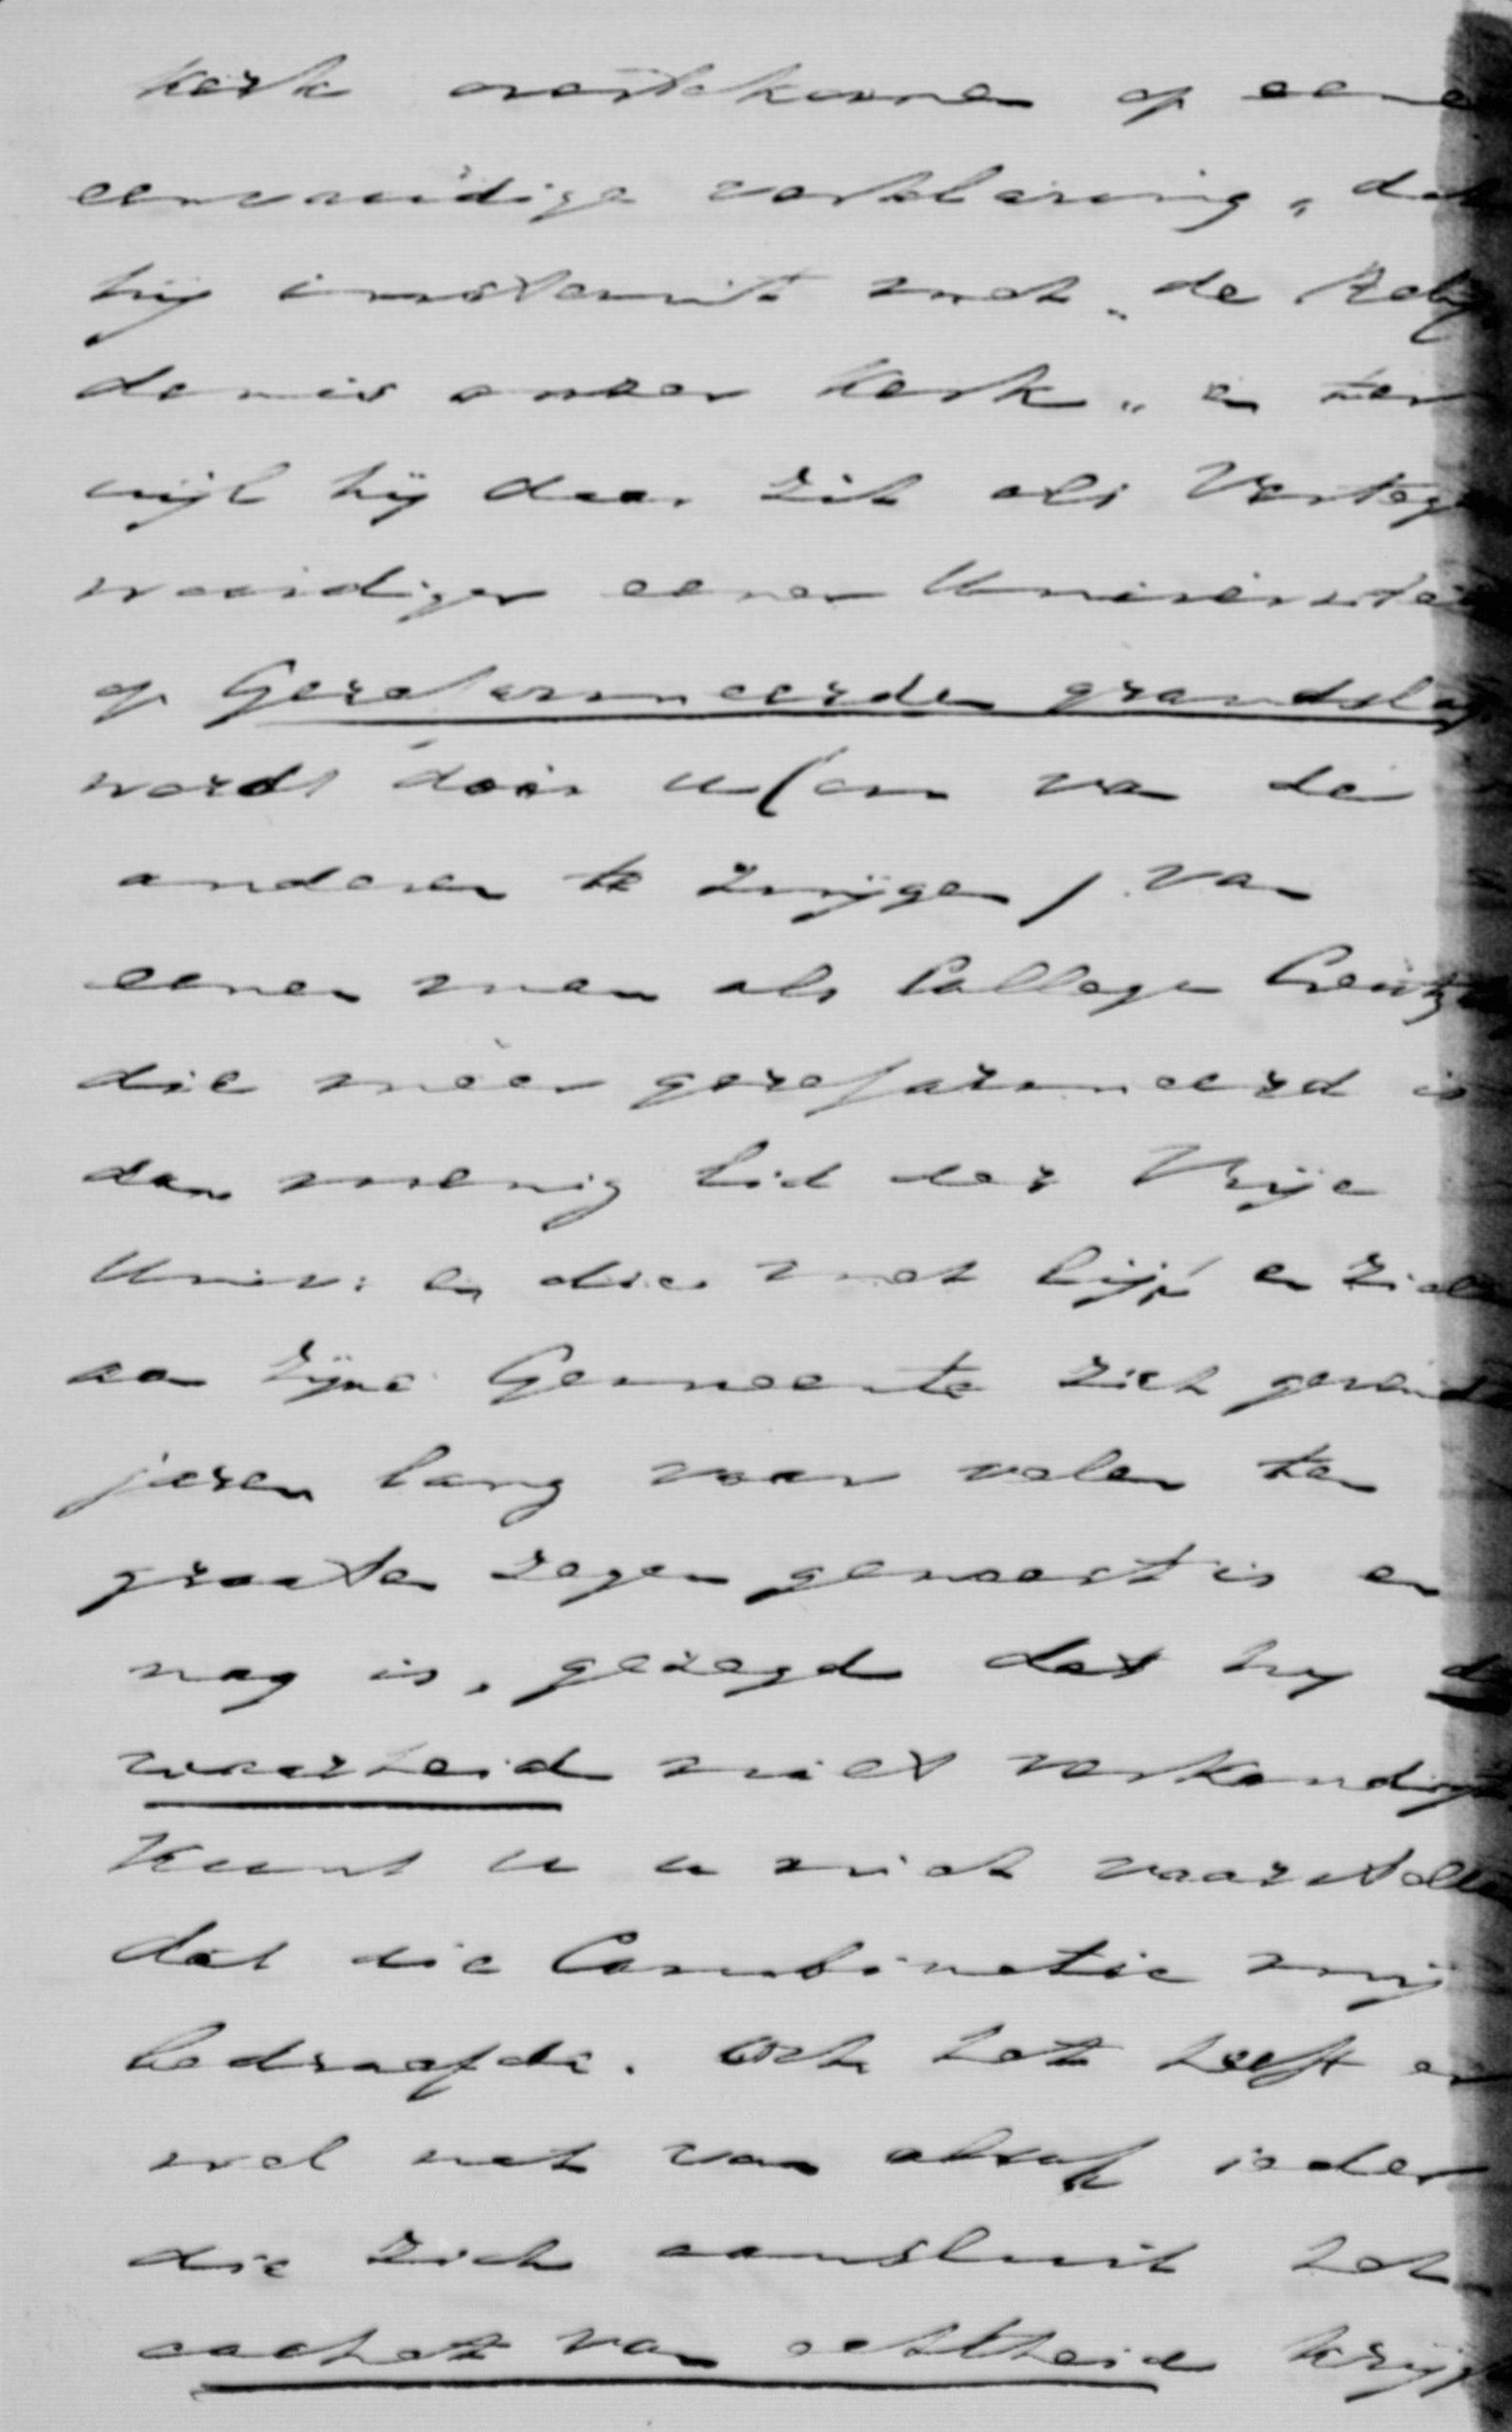 Kerk overtekomen op eene
eenvoudige verklaring, dat
hij instemt met „de Belij
denis onzer Kerk" en ter
wijl hij daar zit als Verteg
woordiger eener Universitei
op Gereformeerden grondslag
wordt door u (om van de
anderen te zwijgen) van
eenen man als Collega
die méér gereformeerd is
dan menig lid der Vrije
Univ: en die met lijf en ziel
aan zijne Gemeente zich
jaren lang voor velen ten
grooten zegen geweest is en
nog is, gezegd dat hij de
waarheid niet verkondigt
Kunt u u niet voorstellen
dat die Combinatie mij
bedroefde. Och het heeft er
wel wat van alsof ieder
die zich aansluit het
cachet van echtheid krijgt